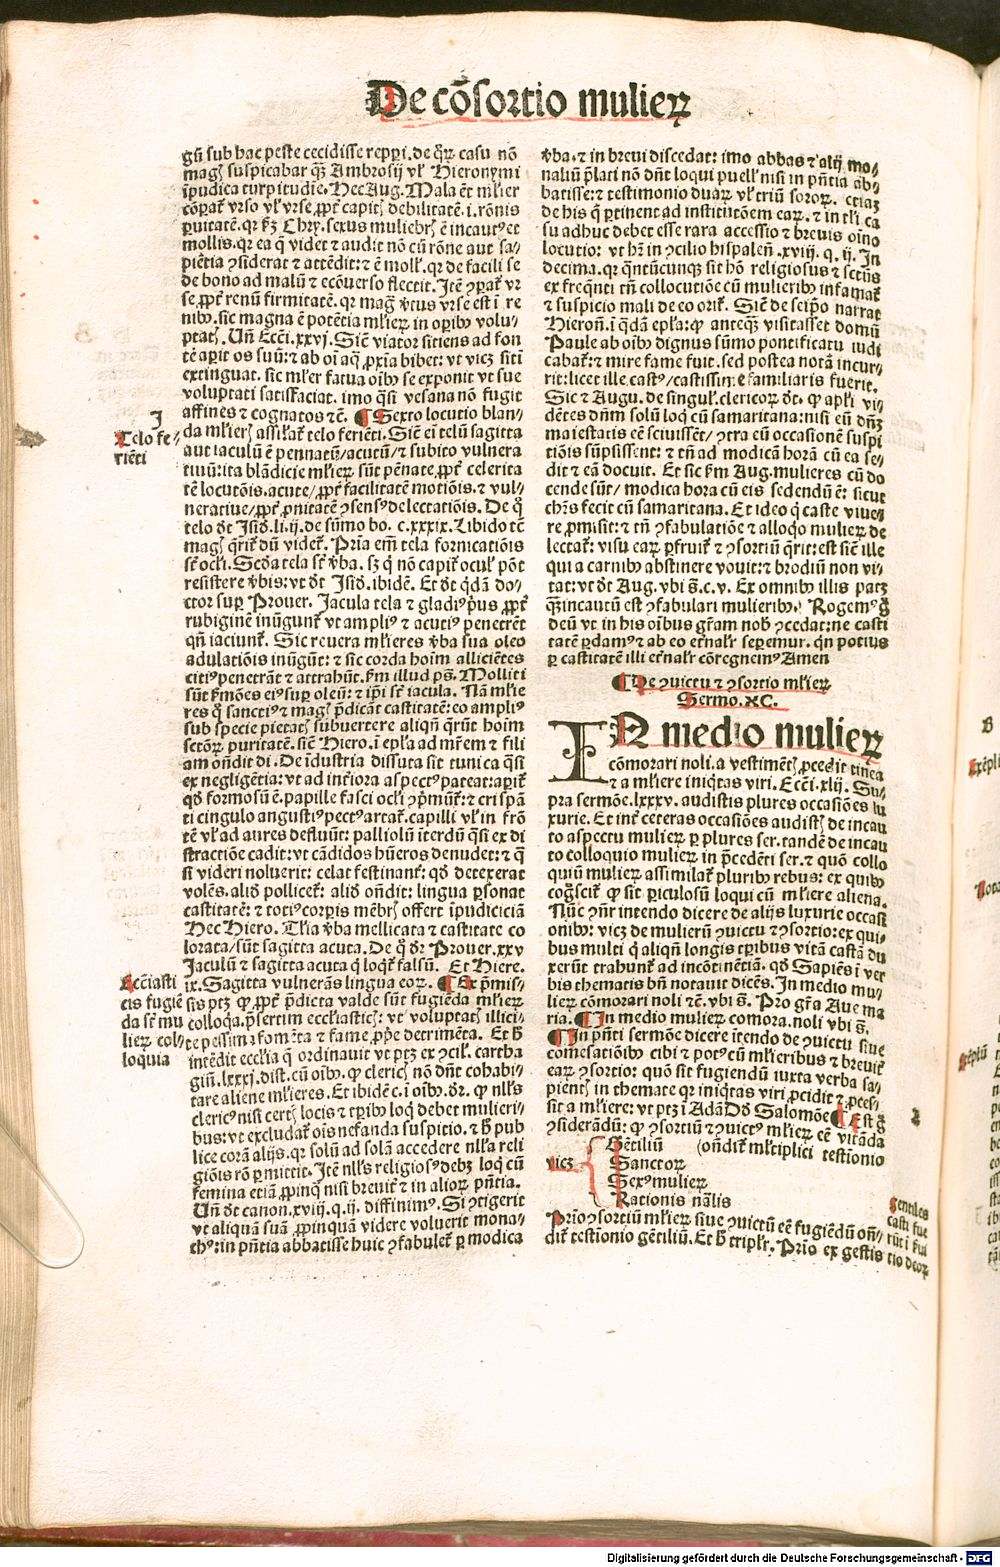 De cōsortio mulieꝝ
gñ sub hac peste cecidisse repperi. de qͦꝝ casu nō
magꝭ suspicabar qꝫ Ambrosij vl̓ Hieronymi
īpudica turpitudie. Hec Aug. Mala ēt ml̓ier
cōparat̃ vrso vl̓ vrse, ꝓpt̓ capitꝭ debilitatē .i. rōnis
ꝑuitatē. qꝛ ẜm Chry. sexus muliebrꝭ ē incautꝰ et
mollis. qꝛ ea q̄ videt ⁊ audit nō cū rōne aut sa-
piētia ꝯsiderat ⁊ attēdit: ⁊ ē moll̓. qꝛ de facili se
de bono ad malū ⁊ ecōuerso flectit. Itē ꝯparat̃ vr
se, ꝓpt̓ renū firmitatē. qꝛ mag̓ v̓tus vrse est ī re
nibꝰ. sic magna ē potētia ml̓ieꝝ in opibꝰ volu-
ptatꝭ. Un̄ Ecci. xxvj. Sic̄ viator sitiens ad fon
tē apit os suū: ⁊ ab oī aq̄ ꝓxīa bibet: vt vicꝫ sitī
extinguat. sic ml̓ier fatua oībꝰ se exponit vt sue
voluptati satiſfaciat. imo q̄si vesana nō fugit
affines ⁊ cognatos ⁊ē. ¶ Sexto locutio blan-
da ml̓ierꝭ assil̓at̃ telo feriēti. Sic̄ ei telū sagitta
aut iaculū ē pennatū/acutū/⁊ subito vulnera
tiuū: ita blādicie ml̓ieꝝ sūt pēnate, ꝓpt̓ celerita
tē locutōis. acute/ ꝓpt̓ facilitatē motiōis. ⁊ vul-
neratiue/ ꝓpt̓ ꝓnitatē ꝯsensꝰ delectatiōis. De q̊
telo dt̄ Isid. li. ij. de sūmo bo. c. xxxix. Libido tē
magꝭ q̄rit̃ dū videt̃. Pria em̄ tela fornicatiōis
sr̄ ocl̓i. Scd̄a tela sr̄ v̓ba. sꝫ q̇ nō capit̃ ocul̓ pōt
resistere v̓bis: vt dt̄ Isid. ibidē. Et dt̄ q̇dā do-
ctor sup Prouer. Jacula tela ⁊ gladiꝰ pͥus ꝓpt̓
rubiginē inūgunt̃ vt ampliꝰ ⁊ acutiꝰ penetrēt
qn̄ iaciunt̃. Sic reuera ml̓ieres v̓ba sua oleo
adulatiōis inūgūt: ⁊ sic corda hoim alliciētes
citiꝰ penetrāt ⁊ attrahūt. ẜm illud pͣ. Molliti
sūt ẜmōes eiꝰ sup oleū: ⁊ ip̄i sr̄ iacula. Nā ml̓ie
res q̊ sanctiꝰ ⁊ magꝭ p̄dicāt castitatē: eo ampliꝰ
sub specie pietatꝭ subuertere aliqn̄ q̄rūt hoim
sctōꝝ puritatē. sic̄ Hiero. ī epl̓a ad mr̄em ⁊ fili
am on̄dit di. De īdustria dissuta sit tunica q̄si
ex negligētia: vt ad inr̄iora aspectꝰ pateat: aꝑit̃
qd̓ formosū ē. papille fasci ocl̓i ꝯp̄mūt̃: ⁊ crispā
ti cingulo angustiꝰ pectꝰ artat̃. capilli vl̓ in frō
tē vl̓ ad aures defluūt: palliolū iterdū q̄si ex di
stractiōe cadit: vt cādidos hūeros denudet: ⁊ q̄
si videri noluerit: celat festinant̃: qd̓ detexerat
volēs. aliō pollicet̃: aliō on̄dit: lingua ꝑsonat
castitatē: ⁊ totiꝰ corpꝑis mēbrꝭ offert īpudiciciā
Hec Hiero. Tl̓ia v̓ba mellicata ⁊ castitate co
lorata/sūt sagitta acuta. De q̊ dr̄ Prouer. xxv
Jaculū ⁊ sagitta acuta q̇ loqt̃ falsū. Et Hiere.
ix. Sagitta vulnerās lingua eoꝝ. ¶ Ex p̄mis-
sis ptꝫ ꝙ ꝓpt̓ p̄dicta valde sūt fugiēda ml̓ieꝝ
colloqa. p̄sertim eccl̓iasticꝭ: vt voluptatꝭ illici-
te pessima fomēta ⁊ fame, ꝓp̄e detrimēta. Et h̄
intēdit eccl̓ia q̄ ordinauit vt ptꝫ ex ꝯcil̓. cartha
giñ. lxxxj. dist. cū oībꝰ. ꝙ clericꝭ nō dn̄t cohabi-
tare aliene ml̓ieres. Et ibidē c. i oībꝰ. dr̄. ꝙ nll̓s
clericꝰ nisi certꝭ locis ⁊ tꝑibꝰ loq̇ debet mulieri-
bus: vt excludat̃ oīs nefanda suspicio. ⁊ h̄ pub
lice corā alijs. qꝛ solū ad solā accedere nll̓a reli
giōis rō ꝑmittit. Itē nll̓s religiosꝰ debꝫ loq̇ cū
femina etiā ꝓpinq̄ nisi breuit̃ ⁊ in alioꝝ p̄n̄tia.
Un̄ dt̄ canon. xviij. q. ij. diffinimꝰ. Si ꝯtigerit
vt aliquam suā ꝓpinquā videre voluerit mona-
chꝰ: in p̄n̄tia abbatisse huic ꝯfabulet̃ ꝑ modica
J
Telo fe-
riēti
Eccīasti
cis fugiē
da sr̄ mu
lieꝝ col-
loquia
v̓ba. ⁊ in breui discedat: imo abbas ⁊ alij mo-
naliū p̄lati nō dn̄t loqui puell̓ nisi in p̄n̄tia ab-
batisse: ⁊ testimonio duaꝝ vl̓ triū soroꝝ. etiaꝫ
de his q̄ ꝑtinent ad institutōem eaꝝ. ⁊ in tl̓i ca
su adhuc debet esse rara accessio ⁊ breuis oīno
locutio: vt hr̄ in ꝯcilio hispalen̄. xviij. q. ij. In
decima. qꝛ qn̄tūcunqꝫ sit hō religiosus ⁊ sctūs
ex freqn̄ti tn̄ collocutiōe cū mulieribꝰ infamat̃
⁊ suspicio mali de eo orit̃. Sic̄ de seip̄o narrat
Hieron̄. i q̇dā epl̓a: ꝙ anteqꝫ visitasset domū
Paule ab oībꝰ dignus sūmo pontificatu iudi
cabat̃: ⁊ mire fame fuit. sed postea notā incur-
rit: licet ille castꝰ/castissim̄ē familiaris fuerit.
Sic ⁊ Augu. de singul̓. clericoꝝ dt̄. ꝙ apl̓i vi-
dētes dn̄m solū loq̇ cū samaritana: nisi eū dn̄ꝫ
maiestatis eē sciuissēt/ ꝯtra eū occasionē suspi
tiōis sūpsissent: ⁊ tn̄ ad modicā horā cū ea se-
dit ⁊ eā docuit. Et sic ẜm Aug. mulieres cū do
cende sūt/ modica hora cū eis sedendū ē: sicut
chr̄s fecit cū samaritana. Et ideo q̇ caste viue-
re ꝓmisit: ⁊ tn̄ ꝯfabulatiōe ⁊ alloqo mulieꝝ de
lectat̃: visu eaꝝ ꝑfruit̃ ⁊ ꝯsortiū q̄rit: est sic̄ ille
qui a carnibꝰ abstinere vouit: ⁊ brodiū non vi-
tat: vt dt̄ Aug. vbi s̄. c. v. Ex omnibꝰ illis patꝫ
qꝫ incautū est ꝯfabulari mulieribꝰ. Rogemꝰ g̊
deū vt in his oībus gr̄am nob̓ ꝯcedat: ne casti
tatē ꝑdamꝰ ⁊ ab eo et̓nal̓r seꝑemur. qn̄ potius
ꝑ castitatē illi et̓nal̓r cōregnemꝰ Amen
¶ De ꝯuictu ⁊ ꝯsortio ml̓ieꝝ
Sermo. XC.
IN medio mulieꝝ
cōmorari noli. a vestimētꝭ ꝓcedit tinea
⁊ a ml̓iere iniq̇tas viri. Ecci. xlij. Su-
pra sermōe. lxxxv. audistis plures occasiōes lu
xurie. Et int̓ ceteras occasiōes audistꝭ de incau
to aspectu mulieꝝ ꝑ plures ser. tandē de incau
to colloquio mulieꝝ in p̄cedēti ser. ⁊ quō collo
quiū mulieꝝ assimilat̃ pluribꝰ rebus: ex quibꝰ
cog̓scit̃ ꝙ sit ꝑiculosū loqui cū ml̓iere aliena.
Nūc ꝯn̄r intendo dicere de alijs luxurie occasi
onibꝰ: vicꝫ de mulierū ꝯuictu ⁊ ꝯsortio: ex qui-
bus multi q̇ aliqn̄ longis tꝑibus vitā castā du
xerūt trahunt̃ ad incōtinētiā. qd̓ Sapiēs ī ver
bis thematis bn̄ notauit dicēs. In medio mu-
lieꝝ cōmorari noli ⁊ē. vbi s̄. Pro gr̄a Aue ma
ria. ¶ In medio mulieꝝ comora. noli vbi s̄.
¶ In p̄n̄ti sermōe dicere itendo de ꝯuictu siue
comesatiōibꝰ cibi ⁊ potꝰ cū ml̓ieribus ⁊ breuit̃
eaꝝ ꝯsortio: quō sit fugiendū iuxta verba sa-
pientꝭ in themate qꝛ iniq̇tas viri ꝓcidit ⁊ ꝓces-
sit a ml̓iere: vt ptꝫ ī Adā Dd̓ Salomōe ¶ Est g̊
ꝯsiderādū: ꝙ ꝯsortiū ⁊ ꝯuictꝰ ml̓ieꝝ eē vitāda
Gētiliū (on̄dit̃ ml̓tiplici testionio
vicꝫ Sanctoꝝ
Sexꝰ mulieꝝ
Rationis nālis
Prio ꝯsortiū ml̓ieꝝ siue ꝯuictū eē fugiēdū on̄-
dit̃ testionio gētiliū. Et h̄ tripl̓r. Prio ex gestis
Gentiles
casti fue
rūt ī ẜui
tio deoꝝ